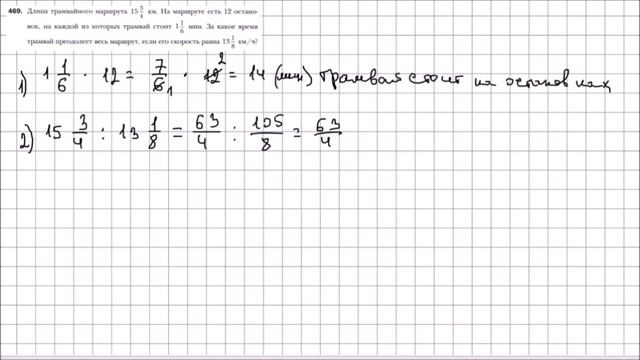 469. Длина трамвайного маршрута 15 3/4 км. На маршруте есть 12 остано-
вок, на каждой из которых трамвай стоит 1 1/6 мин. За какое время
трамвай преодолеет весь маршрут, если его скорость равна 13 1/8 км/ч?
1) 1 1/6 · 12 = 7/6 1 · 12 2 = 14 (мин) трамвай стоит на остановках
2) 15 3/4 : 13 1/8 = 63/4 : 105/8 = 63/4